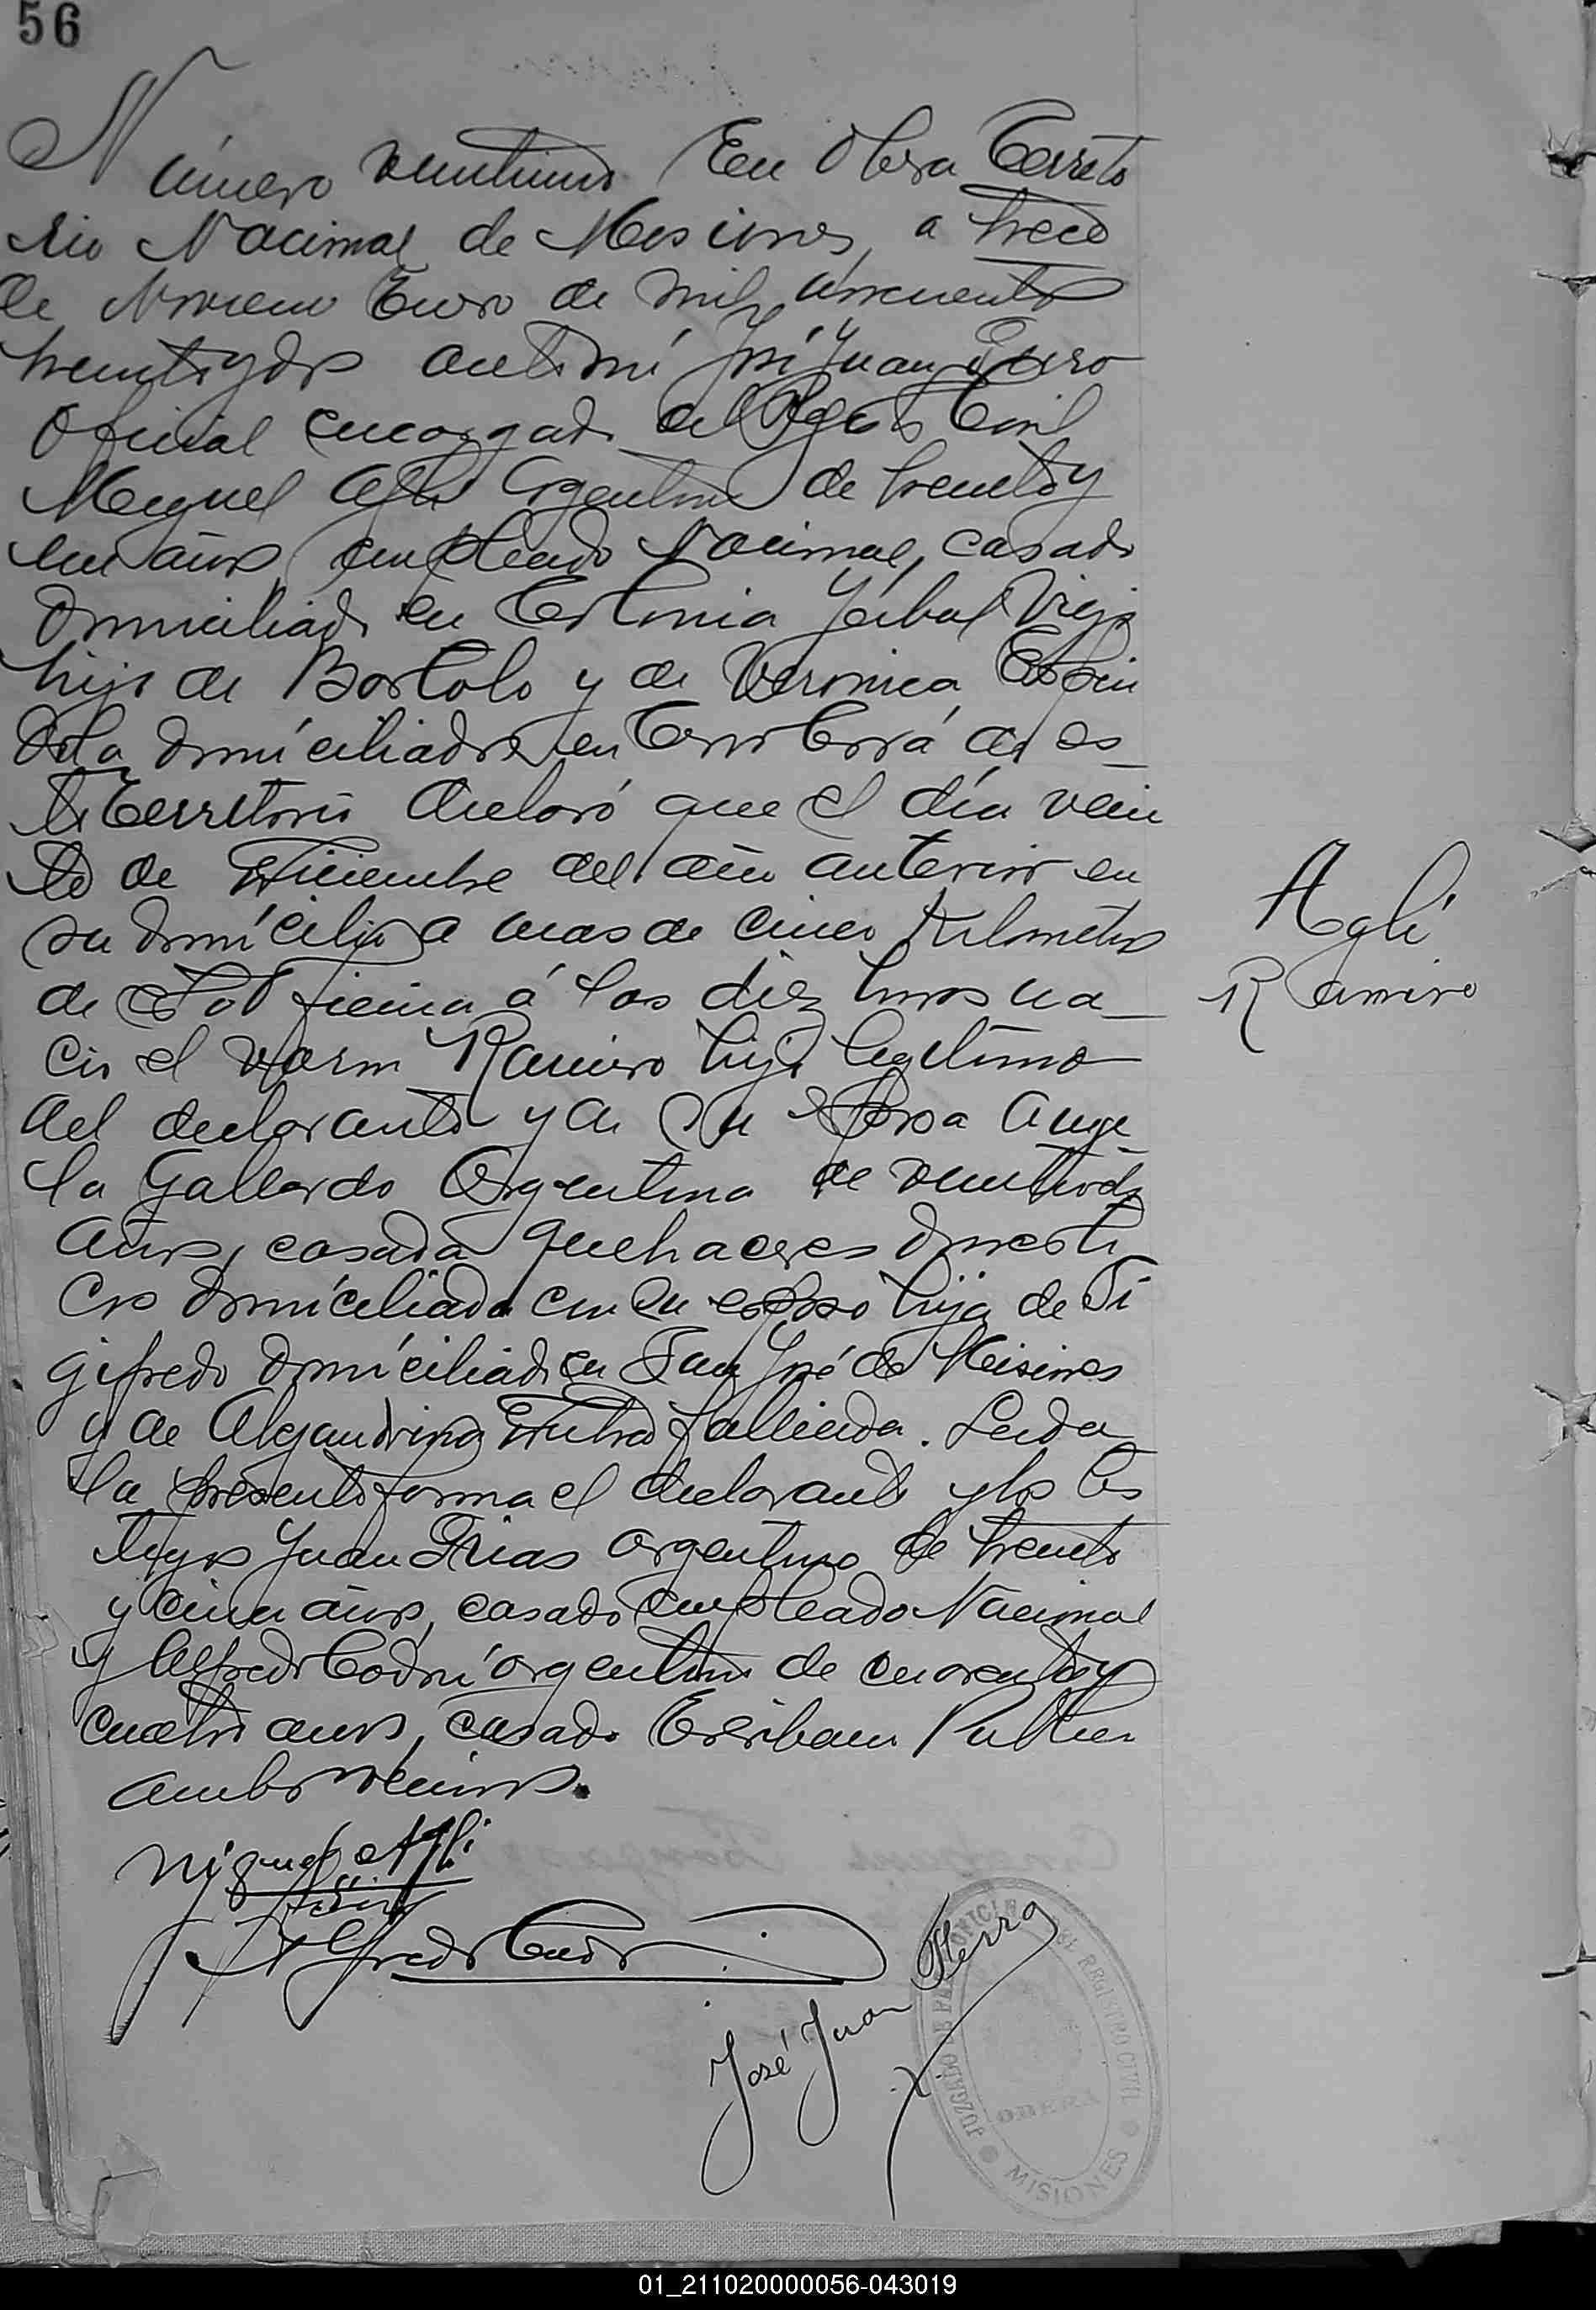 56
Número veintiuno En Obera Territo
rio Nacional de Misiones, a trece
de Enero de mil novecientos
treintaydos ante mi José Juan Fierro
Oficial encargado del Registro Civil
Miguel Agli Argentino de treintay
un años, empleado Nacional, casado
domiciliado en Colonia Yerbal Viejo
hijo de Bortolo y de Veronica Espin
dola domiciliados en Cerro Corá de es_
te Territorio declaró que el día vein
te de Diciembre del año anterior en
su domicilio a mas de cinco Kilometros
de esta Oficina á las diez horas na_
ció el varon Ramiro hijo legitimo
del declarante y de su esposa Ange_
la Gallardo Argentina de veintidos
años, casada quehaceres domesti_
cos domiciliada con su esposo hija de Si
gifredo domiciliado en San José de Misiones
y de Alejandrina fallecida. Leida
la presente forma el declarante y los tes
tigos Juan Frias argentino de treinta
y cinco años, casado empleado Nacional
y Alfredo argentino de cuarentay
cuatro años, casado Escribano Publico
ambos vecinos.
Agli
Ramiro
Miguel Agli
Alfredo
José Juan Fierro
JUZGADO DE PAZ
DEL REGISTRO CIVIL
OBERA
MISIONES
01_211020000056-043019